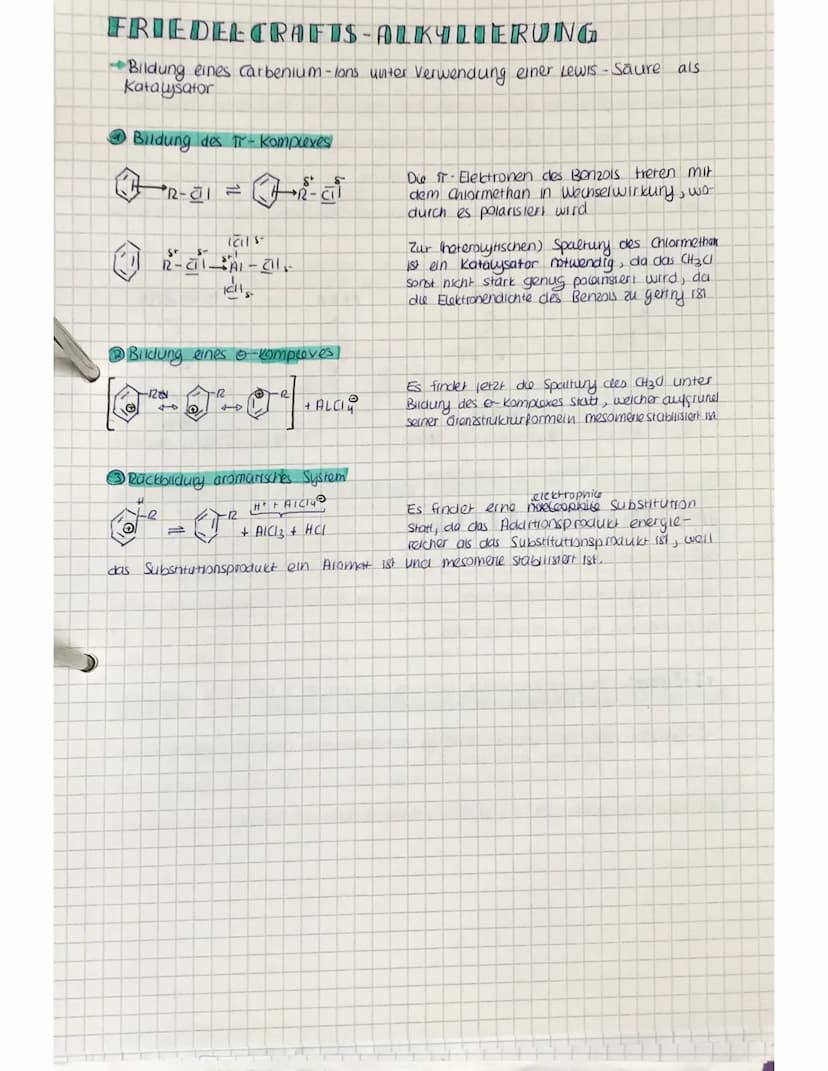 FRIEDEL-CRAFTS-ALKYLIERUNG
→ Bildung eines Carbenium-Ions unter Verwendung einer Lewis-Säure als
Katalysator
① Bildung des π-Komplexes
R-Cl| ⇌ R-Cl|
δ+ δ-
Die π-Elektronen des Benzols treten mit
dem Chlormethan in Wechselwirkung, wo-
durch es polarisiert wird
|Cl| δ-
δ+ δ- δ+
R-Cl|→Al-Cl| δ-
|Cl| δ-
Zur (heterolytischen) Spaltung des Chlormethan
ist ein Katalysator notwendig, da das CH3Cl
sonst nicht stark genug polarisiert wird, da
die Elektronendichte des Benzols zu gering ist
② Bildung eines σ-Komplexes
[⊕ R ↔ ⊕ R ↔ ⊕ R] + AlCl4⊖
Es findet jetzt die Spaltung des CH3Cl unter
Bildung des σ-Komplexes statt, welcher aufgrund
seiner Grenzstrukturformeln mesomeriestabilisiert ist
③ Rückbildung aromatisches System
H
H+ + AlCl4⊖
⊕ -R ⇌ -R + AlCl3 + HCl
elektrophile
Es findet eine nucleophile Substitution
statt, da das Additionsprodukt energie-
reicher als das Substitutionsprodukt ist, weil
das Substitutionsprodukt ein Aromat ist und mesomerie stabilisiert ist.